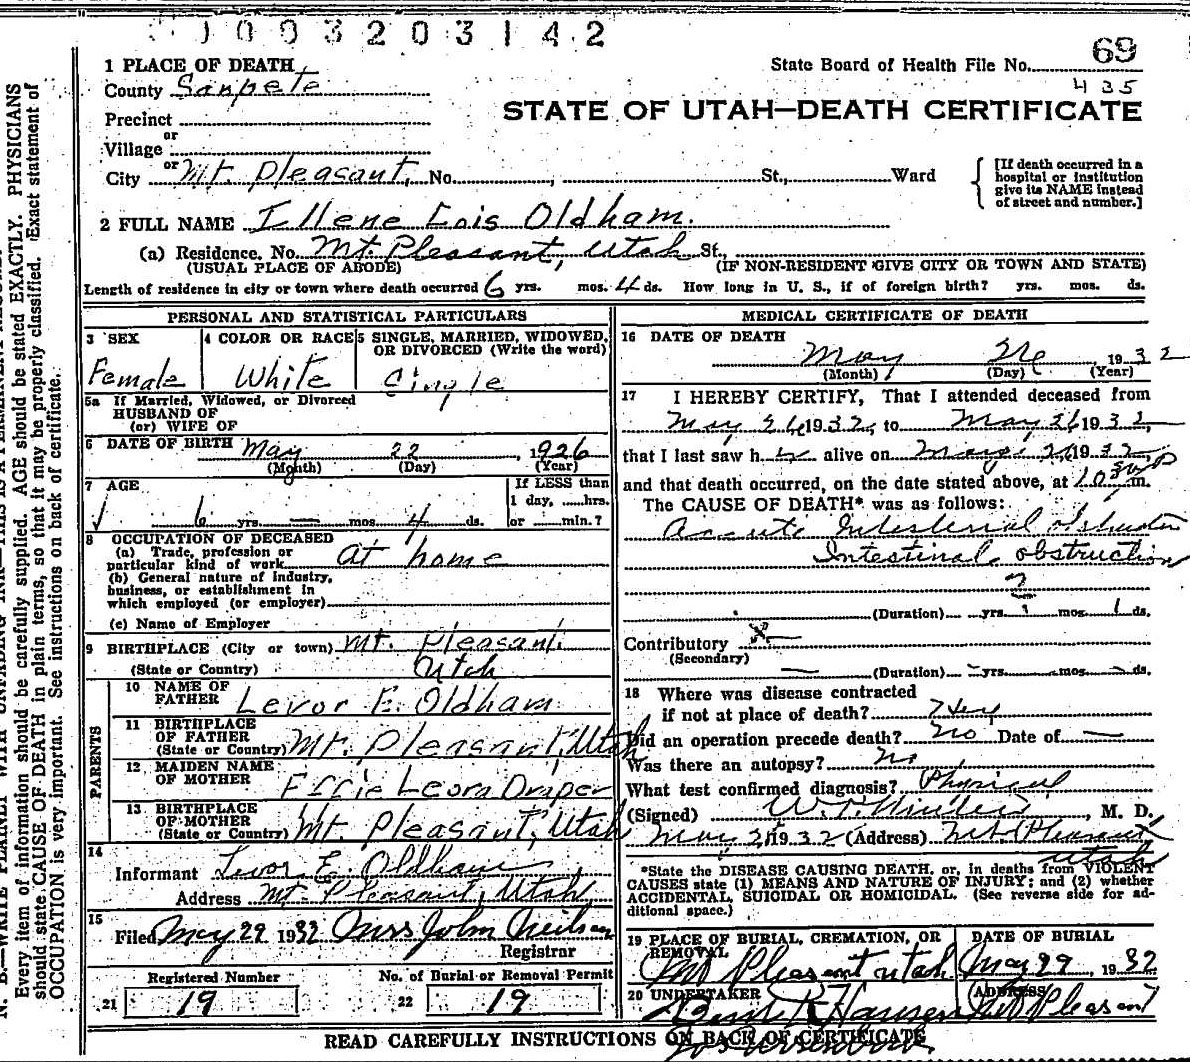 1003203142
1 PLACE OF DEATH
State Board of Health File No. 69
435
County Sanpete
STATE OF UTAH—DEATH CERTIFICATE
Precinct
or
Village
or
City Mt. Pleasant, No. , St., Ward
[If death occurred in a
hospital or institution
give its NAME instead
of street and number.]
2 FULL NAME Illene Lois Oldham.
(a) Residence. No. Mt. Pleasant, Utah St.,
(USUAL PLACE OF ABODE) (IF NON-RESIDENT GIVE CITY OR TOWN AND STATE)
Length of residence in city or town where death occurred 6 yrs. mos. 4 ds. How long in U. S., if of foreign birth? yrs. mos. ds.
PERSONAL AND STATISTICAL PARTICULARS
3 SEX 4 COLOR OR RACE 5 SINGLE, MARRIED, WIDOWED,
OR DIVORCED (Write the word)
Female White Single
5a If Married, Widowed, or Divorced
HUSBAND OF
(or) WIFE OF
6 DATE OF BIRTH May 22, 1926
(Month) (Day) (Year)
7 AGE If LESS than
1 day, ......hrs.
6 yrs. — mos. 4 ds. or ......min.?
8 OCCUPATION OF DECEASED
(a) Trade, profession or
particular kind of work at home
(b) General nature of industry,
business, or establishment in
which employed (or employer)
(c) Name of Employer
9 BIRTHPLACE (City or town) Mt. Pleasant.
(State or Country) Utah
PARENTS
10 NAME OF
FATHER Levor E. Oldham
11 BIRTHPLACE
OF FATHER
(State or Country) Mt. Pleasant, Utah
12 MAIDEN NAME
OF MOTHER Effie Leora Draper
13 BIRTHPLACE
OF MOTHER
(State or Country) Mt. Pleasant, Utah
14
Informant Levor E. Oldham
Address Mt. Pleasant, Utah
15
Filed May 29 1932 Mrs John Neilson
Registrar
Registered Number No. of Burial or Removal Permit
21 19 22 19
MEDICAL CERTIFICATE OF DEATH
16 DATE OF DEATH
May 26, 1932
(Month) (Day) (Year)
17 I HEREBY CERTIFY, That I attended deceased from
May 26 1932, to May 26 1932,
that I last saw h alive on May 26 1932
and that death occurred, on the date stated above, at 10 m.
The CAUSE OF DEATH* was as follows:
Accute Intestinal obstruction
Intestinal obstruction
?
(Duration) yrs. mos. 1 ds.
Contributory
(Secondary)
— (Duration) — yrs. — mos. — ds.
18 Where was disease contracted
if not at place of death?
Did an operation precede death? No Date of —
Was there an autopsy? No
What test confirmed diagnosis? Physical
(Signed) , M. D.
May 1932 (Address) Mt. Pleasant
Utah
*State the DISEASE CAUSING DEATH, or, in deaths from VIOLENT
CAUSES state (1) MEANS AND NATURE OF INJURY; and (2) whether
ACCIDENTAL, SUICIDAL OR HOMICIDAL. (See reverse side for ad-
ditional space.)
19 PLACE OF BURIAL, CREMATION, OR
REMOVAL DATE OF BURIAL
Mt Pleasant Utah May 29, 1932
20 UNDERTAKER ADDRESS
Hansen Mt Pleasant
READ CAREFULLY INSTRUCTIONS ON BACK OF CERTIFICATE
Every item of information should be carefully supplied. AGE should be stated EXACTLY. PHYSICIANS
should state CAUSE OF DEATH in plain terms, so that it may be properly classified. Exact statement of
OCCUPATION is very important. See instructions on back of certificate.